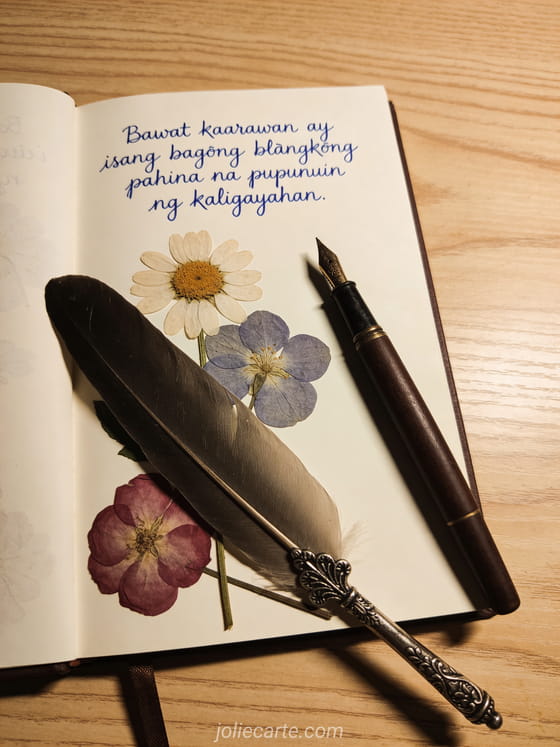 Bawat kaarawan ay
isang bagōng blàngkōng
pahina na pupunuin
ng kaligayahan.
joliecarte.com